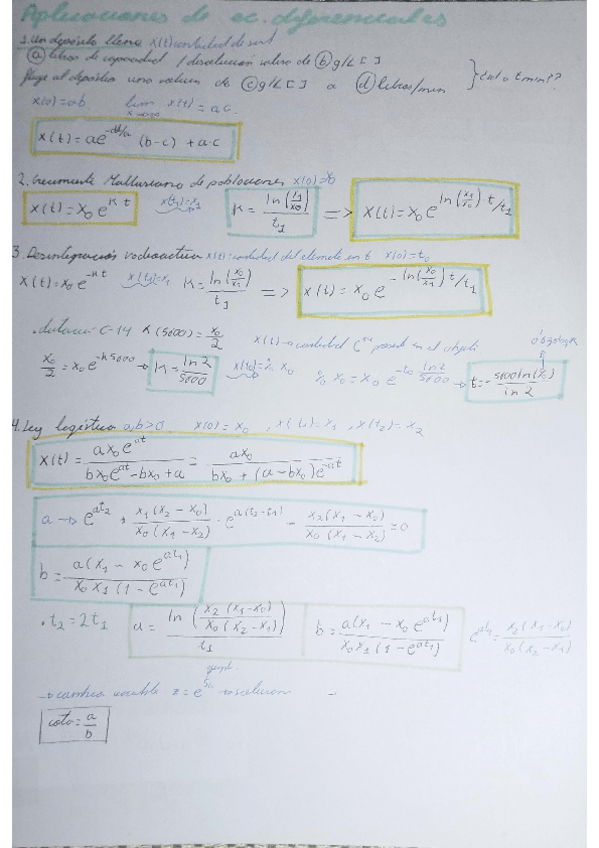 Aplicaciones de ec. diferenciales
1. Un depósito lleno x(t) cantidad de
(a) litros de capacidad / disolución salina de (b) g/L [ ]
fluye al depósito una salina de (c) g/L [ ] a (d) litros/min } t min?
x(0)=ab lim x(t)=ac.
x(t)=ae^(-dt/a) (b-c) + a·c
2. Crecimiento Malthusiano de poblaciones x(0)=x0
x(t)=x0 e^(kt) x(t1)=x1 k = ln(x1/x0)/t1 => x(t)=x0 e^(ln(x1/x0)·t/t1)
3. Desintegración radioactiva x(t)=cantidad del elemento en t x(0)=
x(t)=x0 e^(-kt) x(t1)=x1 k=ln(x0/x1)/t1 => x(t)=x0 e^(-ln(x0/x1) t/t1)
. datación C-14 x(5600)=x0/2 x(t)→cantidad C en el objeto
x0/2 = x0 e^(-k5600) → k = ln2/5600 % x0 = x0 e^(-t0 ln2/5600) → t=- 5600 ln(%)/ln2
4. Ley logística a,b>0. x(0)=x0, x(t1)=x1, x(t2)=x2
x(t) = ax0e^(at)/(bx0e^(at)-bx0+a) = ax0/(bx0+(a-bx0)e^(-at))
a → e^(at2) + x1(x2-x0)/x0(x1-x2) · e^(a(t2-t1)) - x2(x1-x0)/x0(x1-x2) = 0
b = a(x1-x0e^(at1))/x0x1(1-e^(at1))
. t2=2t1 a = ln(x2(x1-x0)/x0(x2-x1))/t1 b = a(x1-x0e^(at1))/x0x1(1-e^(at1)) e^(at1) = x2(x1-x0)/x0(x2-x1)
ejemplo
→ cambio variable z=e^(5a) → solución -
cota = a/b